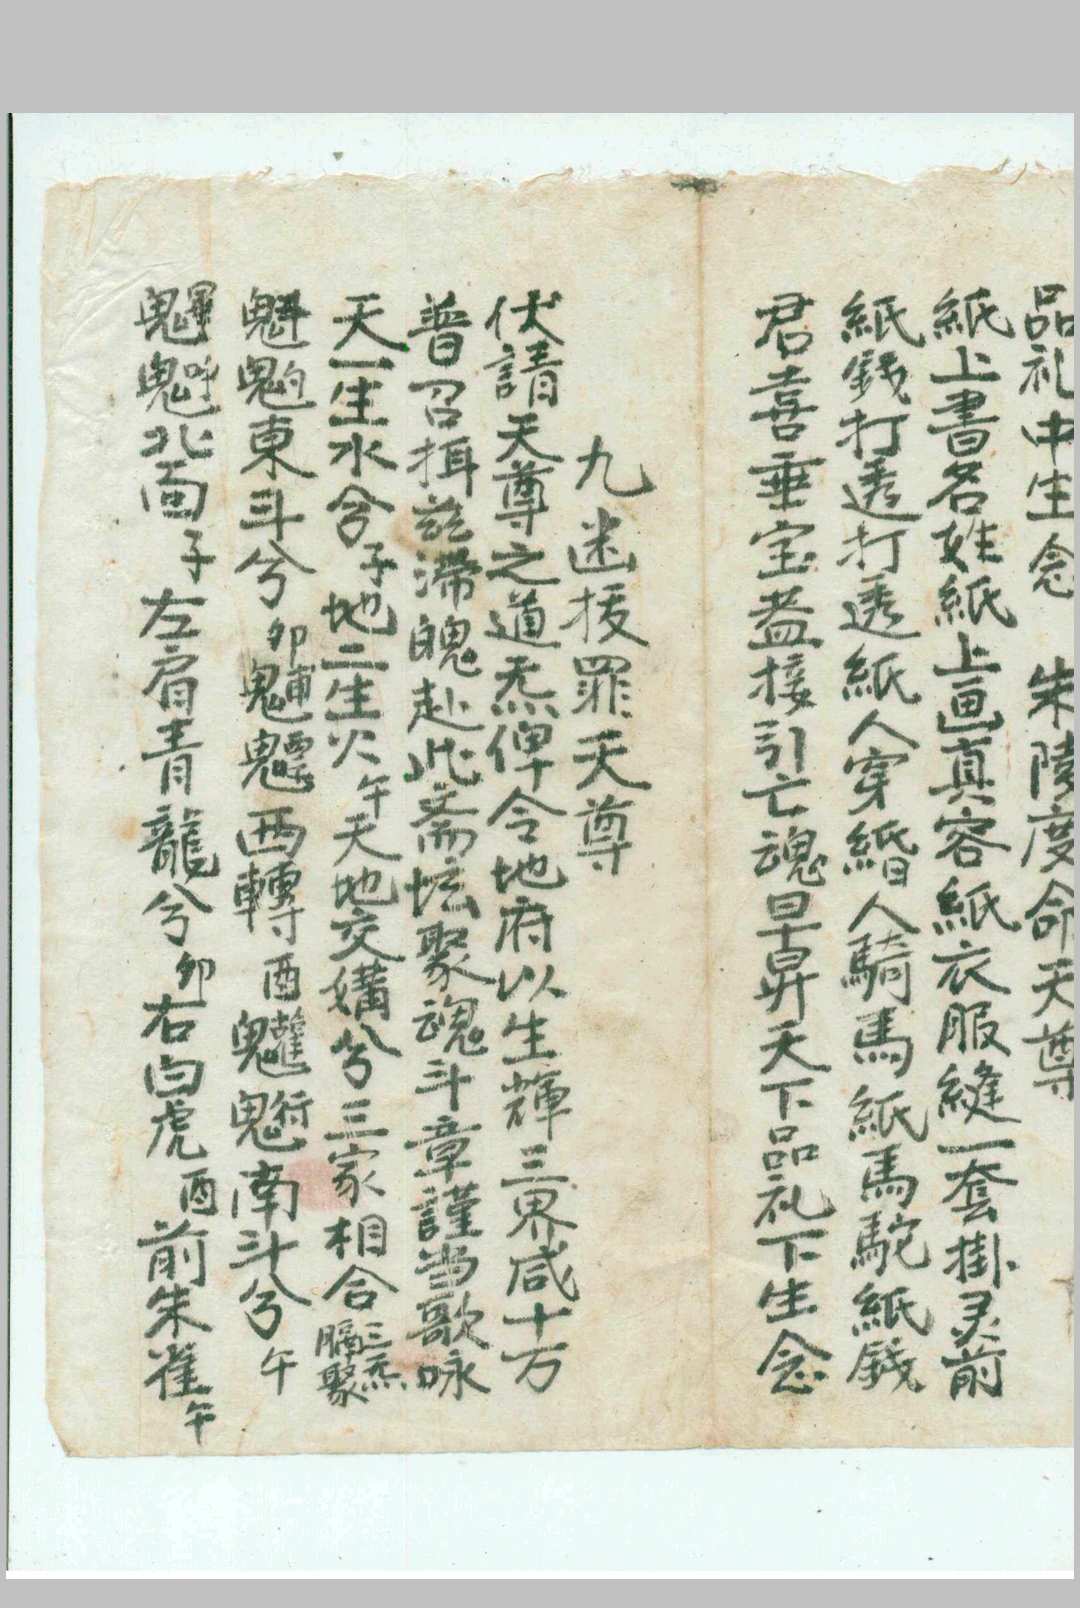 品礼中生念　朱陵度命天尊
紙上書名姓紙上画真容紙衣服縫一套掛灵前
紙錢打透打透紙人穿緍人騎馬紙馬駝紙錢
君喜垂宝盖接引亡魂早昇天下品礼下生念
九幽拔罪天尊
伏請天尊之道炁俾令地府以生輝三界咸十万
普召揖茲滞魄赴此斋坛聚魂斗章謹当歌咏
天一生水兮子地二生火午天地交媾兮三家相合三炁腡聚
魁魁東斗兮卯西轉酉南斗兮午
北面子左肩青龍兮卯右白虎酉前朱雀午